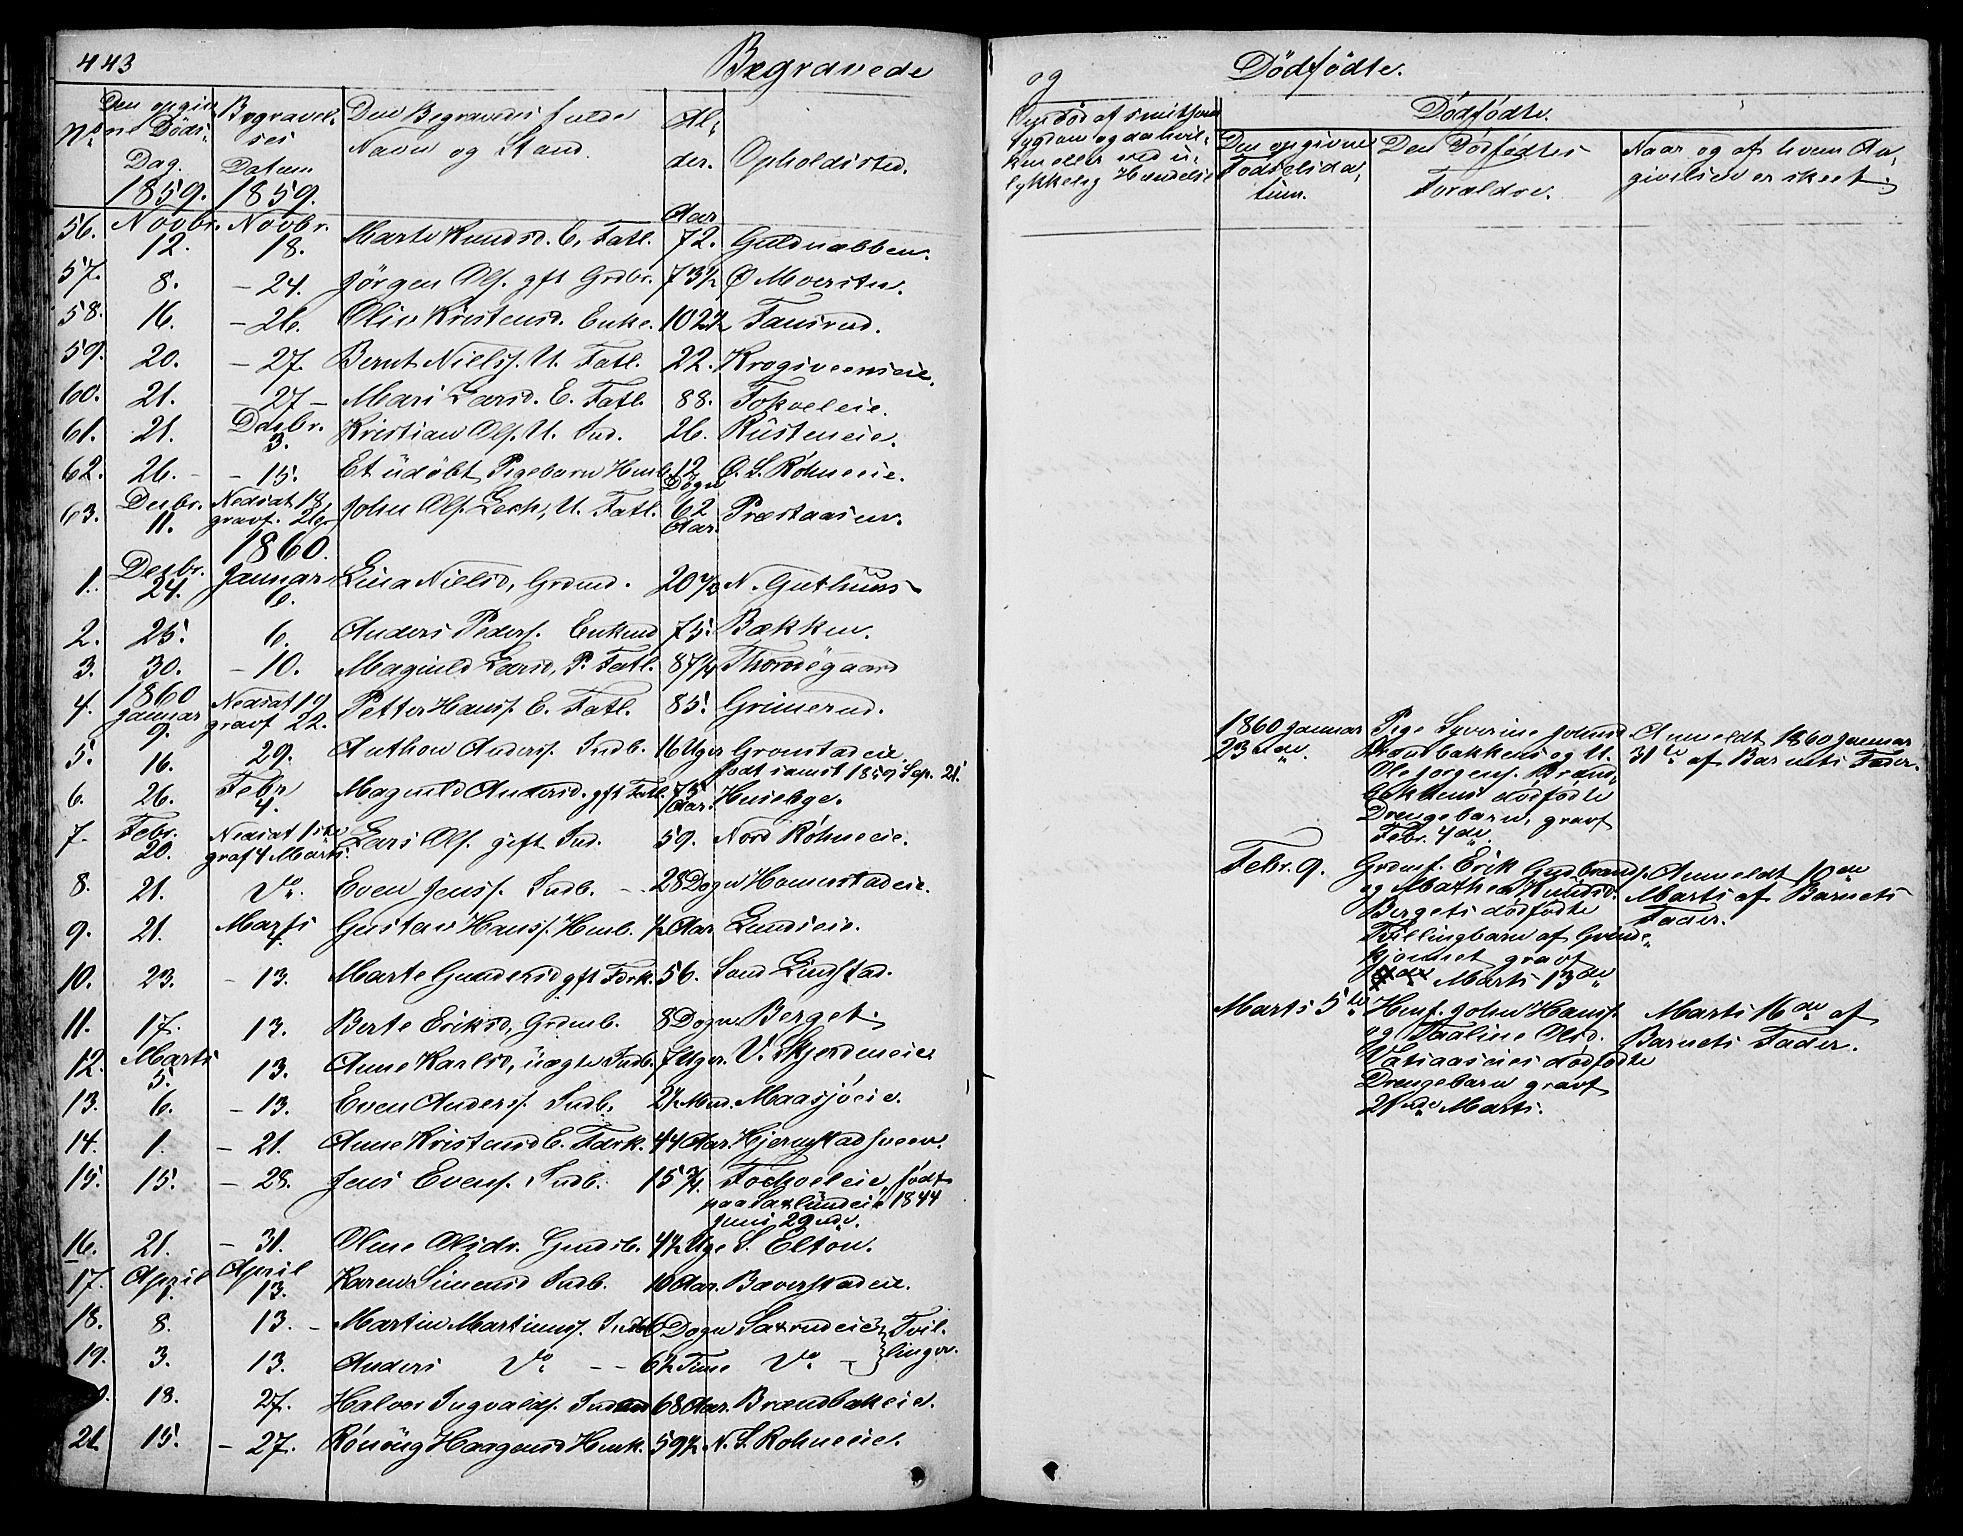 443
Begravede
No
Den opgivne Döds-Dag.
Begravelses Datum
Den Begravedes fulde Navn og Stand.
Alder.
Opholdssted.
1859. 1859. Aar
56. Novbr. 12. Novbr. 18. Marte Knudsd. E. Fatl. 72. Guldnæbben.
57. 8. - 24. Jörgen Ols. gft Grdbr. 73½ Ö Mversten.
58. 16. - 26. Olive Kristensd. Enke. 102½ Fansrud.
59. 20. - 27. Bernt Nielss. U. Fatl. 22. Krogsveeneie.
60. 21. - 27 - Mari Larsd. E. Fatl. 88. Tokveleie.
61. 21. Decbr. 3. Kristian Ols. U. Ind. 26. Rusteneie.
62. 26. - - 15. Et udöbt Pigebarn Hmb. 12 Dögn Ö. L. Röhneeie.
63. Decbr. 11. Nedsat 18 gravf. 26 John Ols. Lech, U. Fatl. 62 Aar. Præstaasen.
1860.
1. Decbr. 24. Januar 6. Lina Nielsd, Grdmd. 20 N. Guthuus
2. 25. 6. Anders Peders. Enkmd 75. Bækken.
3. 30. - 10. Magnild Larsd, P. Fatl. 87¼ Thorsögaard
4. 1860 Januar 9. Nedsat 19 gravf 22. Petter Hanss. E. Fatl. 85. Grimerud.
5. 16. 29. Anthon Anderss. Indb. 16 Uger Gronstadeie.
födt samst 1859 Sep. 21.
6. 26. Febr 4. Magnild Andersd. gft Fatl. 75 Aar. Huseby.
7. Febr. 20. Nedsat 1ste graf 4 Marts. Lars Ols. gift Ind. 59. Nord Röhneeie.
8. 21. Do. Even Jenss. Indb. - 28 Dögn Homerstadeie.
9. 21. Marts 4. Gustav Hanss. Hmb. ½ Aar Lundseie.
10. 23. - 13. Marte Gundersd gft Fdrk. 56. Sand Lindstad.
11. 17. 13. Berte Eriksd, Grdmb. 8 Dögn Berget.
12. Marts 5. 13. Anne Karlsd, uægte Indb. 7 Uger. V. Skjerdeneie
13. 6. - 13. Even Anderss. Indb. 2½ Mnd. Maasjöeie.
14. 1. - 21. Anne Kristansd E. Fdrk. 44 Aar. Hjernstadsveen.
15. 15. - 28. Jens Evens. Indb. 15¾. Tockveleie, födt
paa Saxlundeie 1844
Juni 29de.
16. 21. - 31. Oline Olsdr. Gmdsb. 4½ Uge S. Elton.
17. April 1. April 13. Karen Simensd Indb. 10 Aar. Bæverstadeie.
18. 8. 13. - Martin Martinuss. Indb 6 Dögn Saxrudeie } Tvil-
19. 3. 13. Anders Do - - 6½ Time Do - } linger.
18. 27. Halvor Ingvalds. Indmd 68 Aar. Brændbakeie.
21 15. - 27. Rönöug Haagensd Hmk. 59½ N. L. Rohneeie.
og
Dödfödte.
Om död af smitsom
Sygdom og da hvil-
ken eller ved u-
lykkelig Hændelse
Dödfödte.
Den opgivne Födselsdatum.
Den Födfödtes Forældre.
Naar og af hvem An-
givelsen er skeet.
1860 Januar 23den.
Pige Syverine Johnsd
Brændbakkens og U.
Ole Jörgens. Brænd-
bakkens dödfödte
Drengebarn, gravf
Febr. 4de.
Anmeldt 1860 Januar
31te af Barnets Fader.
Febr. 9.
Grdmf. Erik Gudbrands.
og Mathea Knudsd.
Bergets dödfödte
Tvillingbarn af Qvinde-
kjönnet gravf
Marts 13de
Anmeldt 10de
Marts af Barnets
Fader.
Marts 5te
Hmf. John Hanss.
og Paaline Olsd.
Vatsaaseies dödfödte
Drengebarn gravf
21de Marts.
Marts 16de af
Barnets Fader.